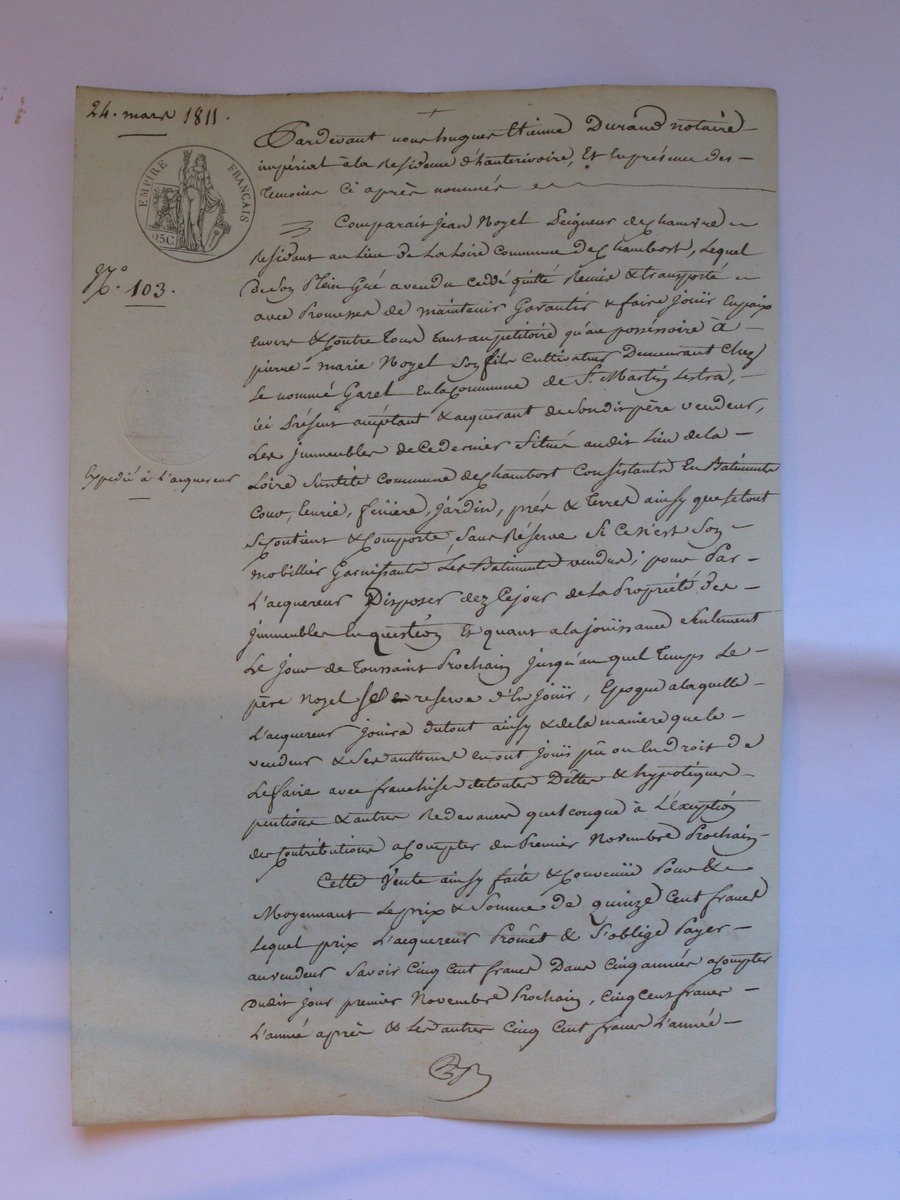 24. mars 1811.
EMPIRE FRANÇAIS
25C
N.° 103.
Expedié à l'acquereur
Pardevant nous hugues Etienne Durand notaire
impérial à la Residence d'hauterivoire, Et En présence des
Temoins Ci après nommés
Comparait jean Noyel Peigneur de Chanvre
Residant au Lieu de La Loire Commune de Chambost, Lequel
De Son Plein Gré a vendu Ceddé quitté Remis & transporté
avec Promesse de maintenir Garantir & faire Joüir En paix
Envers & Contre Tous tant au pétitoire qu'au posséssoire à
pierre-marie Noyel Son fils Cultivateur Demeurant Chez
Le nommé Garel En la Commune de St. Martin Lestra,
ici Présent acéptant & acquerant de Son dit père vendeur,
Les jmmeubles de Ce dernier Situé au dit Lieu de la
Loire Susdite Commune de Chambost Consistants En Batiments
Cour, Ecurie, feniere, Jardin, prés & Terres ainsy que le tout
Se Contient & Comporte, Sans Réserve Si Ce n'est Son
mobillier Garnissants Les Batiments vendus; pour Par
L'acquereur Disposer dez Ce jour de La Propriété Des
jmmeubles En question Et quant a la joüissance Seulement
Le Jour de Toussaint Prochain jusqu'au quel Temps Le
père Noyel Se reserve d'En Joüir, Epoque a laquelle
L'acquereur jouira du tout ainsy & de la maniere que le
vendeur & Ses autheurs en ont Joüis pû ou En droit de
Le faire avec franchise de toutes Dêttes & hypotéques
pentions & autres Redevances quelconque à L'éxéption
des Contributions a Compter du Premier Novembre Prochain
Cette Vente ainsy faite & Convenüe Pour &
Moyennant Le prix & Somme De quinze Cent francs
Lequel prix L'acquereur Promêt & S'oblige Payer
au vendeur Savoir Cinq Cent francs Dans Cinq années a Compter
Dudit Jour premier Novembre Prochain, Cinq Cent francs
L'année après & Les autres Cinq Cent francs L'année